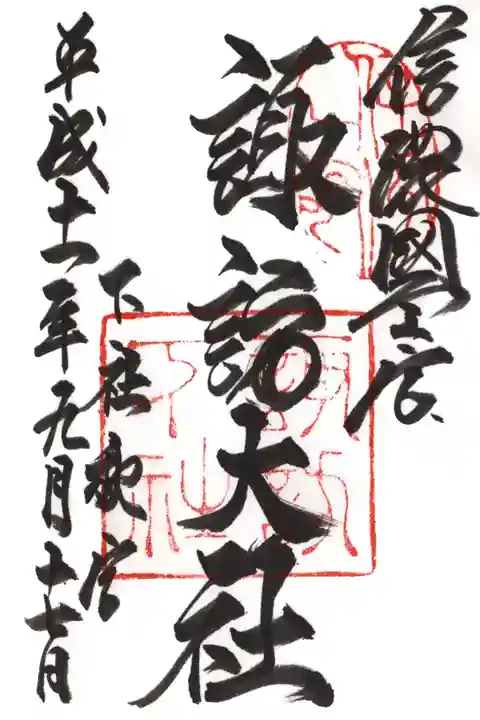 信濃國一宮
諏訪大社
下社秋宮
平成十一年九月十七日